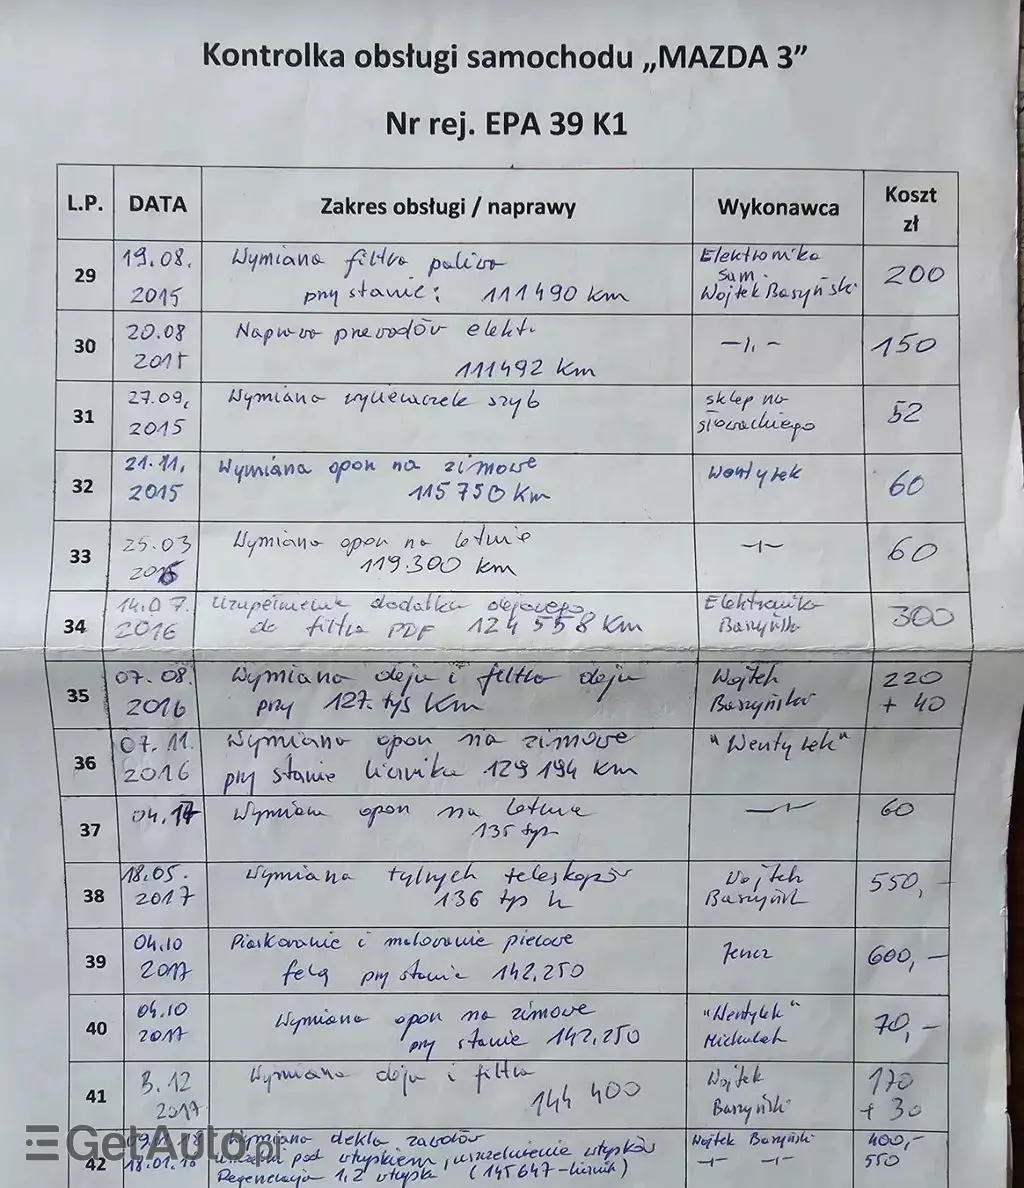 Kontrolka obsługi samochodu „MAZDA 3”
Nr rej. EPA 39 K1
L.P. DATA Zakres obsługi / naprawy Wykonawca Koszt zł
29 19.08.2015 Wymiana filtra paliwa Elektronika Sam. 200
przy stanie: 111490 km Wojtek Baszyński
30 20.08 2015 Naprawa przewodów elekt. —1,~ 150
111492 km
31 27.09,2015 Wymiana wycieraczek szyb sklep na słowackiego 52
32 21.11,2015 Wymiana opon na zimowe Wentylek 60
115750 km
33 25.03 2016 Wymiana opon na letnie —1— 60
119.300 km
34 14.07.2016 Uzupełnienie dodatku olejowego Elektronika 300
do filtra PDF 124558 km Baszyński
35 07.08.2016 Wymiana oleju i filtra oleju Wojtek 220
przy 127.tys km Baszyński + 40
36 07.11.2016 Wymiana opon na zimowe "Wentylek"
przy stanie licznika 129194 km
37 04.17 Wymiana opon na letnie —1— 60
135 tys
38 18.05.2017 Wymiana tylnych teleskopów Wojtek 550,-
136 tys k Baszyńsk
39 04.10 2017 Piaskowanie i malowanie piecowe 600,—
felg przy stanie 142.250
40 04.10 2017 Wymiana opon na zimowe "Wentylek" 70,—
przy stanie 142.250
41 3.12 2017 Wymiana oleju i filtra Wojtek 170
144 400 Baszyński + 30
42 09.1.18 Wymiana dekla zaworów Wojtek Baszyński 400,-
18.01.18 pod wtryskiem, uszczelnienie wtrysków —1— —1— 550
Regeneracja 1,2 wtryska (145647-licznik)
GetAuto.pl